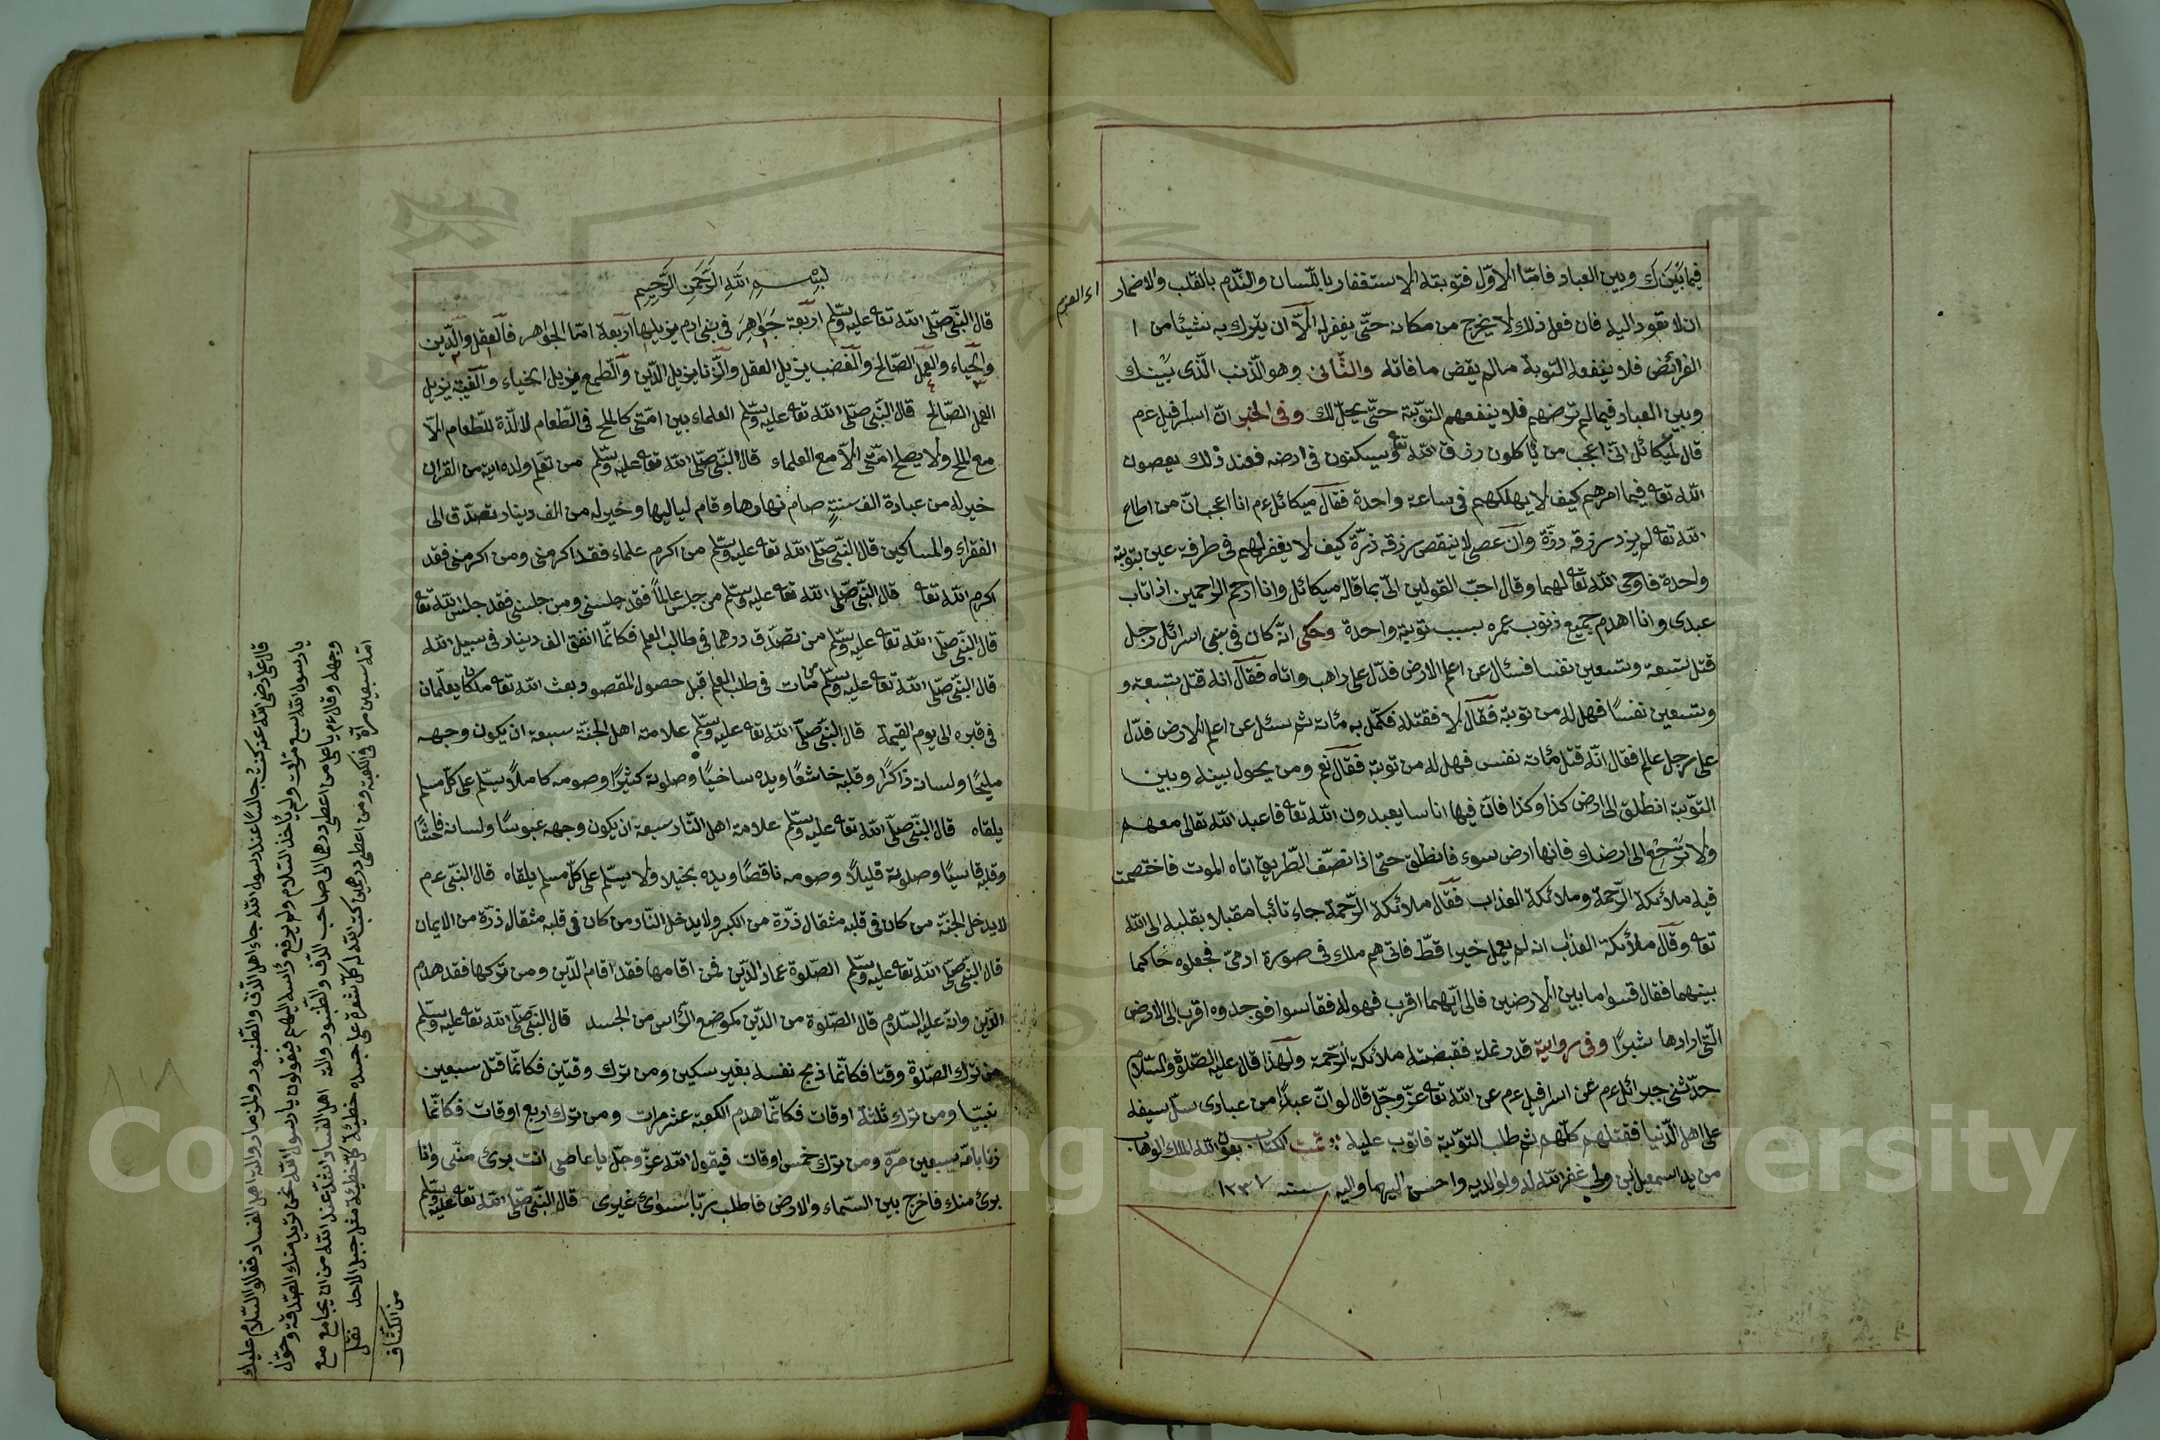 فيما بينك وبين العباد فامّا الاوّل فتوبته الاستغفار باللّسان والنّدم بالقلب والاضمار
ان لا تعود اليه فان فعل ذلك لا يخرج من مكانه حتّى يغفر له الّا ان يترك به شيئا من
الفرائض فلا ينفعه التوبة مالم يقض ما فاته والثّانى وهو الذّنب الّذى بينك
وبين العباد فيما لم ترضهم فلا ينفعهم التّوبة حتّى يحلّ لك وفى الخبر انّ اسرافيل عم
قال لميكائل انى اعجب من يأكلون رزق اللّه تعه ويسكنون فى ارضه فعند ذلك يعصون
اللّه تعه فيما امرهم كيف لا يهلكهم فى ساعة واحدة فقال ميكائل عم انا اعجب انّ من اطاع
اللّه تعه لم يزد رزقه ذرّة وان عصى لا ينقص رزقه ذرّة كيف لا يغفر لهم فى طرفة عين بتوبة
واحدة فاوحى اللّه تعه لهما وقال احبّ القولين الىّ بما قاله ميكائل وانا ارحم الراحمين اذا تاب
عبدى وانا اهدم جميع ذنوب عمره بسبب توبة واحدة وحكى انّه كان فى بنى اسرائل رجل
قتل تسعة وتسعين نفسا فسئال عن اعلم الارض فدلّ على راهب واتاه فقال انه قتل تسعة و
وتسعين نفسًا فهل له من توبة فقال لا فقتله فكمّل به مائة ثم سئل عن اعلم الارض فدلّ
على رجل عالم فقال انّه قتل مائة نفس فهل له من توبة فقال نعم ومن يحول بينه وبين
التّوبة انطلق الى ارض كذا وكذا فانّ فيها اناسا يعبدون اللّه تعه فاعبد اللّه تعالى معهم
ولا ترجع الى ارضك فانها ارض سوء فانطلق حتى اذا نصّف الطّريق اتاه الموت فاختصمت
فيه ملائكة الرّحمة وملائكة العذاب فقال ملائكة الرّحمة جاء تائبا مقبلا بقلبه الى اللّه
تعه وقال ملائكة العذاب انه لم يعمل خيرا قطّ فاتى هم ملك فى صورة ادمىّ فجعلوه حاكما
بينهما فقال قسوا ما بين الارضين فالى ايّهما اقرب فهو له فقاسوا فوجدوه اقرب الى الارض
الّتى ارادها شبرًا وفى رواية قدر نملة فقبضته ملائكة الرّحمة ولهذا قال عليه الصّلوة والسّلام
حدّثنى جبرائل عم عن اسرافيل عم عن اللّه تعه عزّ وجلّ قال لو انّ عبدًا من عبادى سلّ سيفه
على اهل الدّنيا فقتلهم كلّهم ثم طلب التّوبة فاتوب عليه تمت الكتاب بعون اللّه الملك الوهاب
من يد اسمعيل ابن ولى غفر اللّه له ولوالديه واحسن اليهما واليه سنه ١٢٣٧
بسم اللّه الرّحمن الرّحيم
قال النّبى صلّى اللّه تعه عليه وسلّم اربعة جواهر فى بنى ادم يزيلها اربعة امّا الجواهر فالعقل والدّين
والحياء والعمل الصّالح والغضب يزيل العقل والزّنا يزيل الدّين والطّمع يزيل الحياء والغيبة يزيل
العمل الصّالح قال النّبى صلّى اللّه تعه عليه وسلّم العلماء بين امّتى كالملح فى الطّعام لا لذّة للطّعام الّا
مع الملح ولا يصلح امّتى الّا مع العلماء قال النّبى صلّى اللّه تعه عليه وسلّم من تعلّم ولده اية من القران
خير له من عبادة الف سنة صام نهارها وقام لياليها وخير له من الف دينار تصدّق الى
الفقراء والمساكين قال النّبى صلّى اللّه تعه عليه وسلّم من اكرم علماء فقد اكرمنى ومن اكرمنى فقد
اكرم اللّه تعه قال النّبى صلّى اللّه تعه عليه وسلّم من جلس عالمًا فقد جلسنى ومن جلسنى فقد جلس اللّه تعه
قال النّبى صلّى اللّه تعه عليه وسلّم من تصدّق درهما فى طالب العلم فكانّما انفق الف دينار فى سبيل اللّه
قال النّبى صلّى اللّه تعه عليه وسلّم من مات فى طلب العلم قبل حصول المقصود بعث اللّه تعه ملكان يعلّمان
فى قبره الى يوم القيمة قال النّبى صلّى اللّه تعه عليه وسلّم علامة اهل الجنّة سبعة ان يكون وجهه
مليحًا ولسانه ذاكرًا وقلبه خاشعًا ويده ساخيًا وصلوته كثيرًا وصومه كاملاً وسلّم على كلّ مسلم
يلقاه قال النّبى صلّى اللّه تعه عليه وسلّم علامة اهل النّار سبعة ان يكون وجهه عبوسًا ولسانه فاحشًا
وقلبه قاسيًا وصلوته قليلاً وصومه ناقصًا ويده بخيلا ولا يسلّم على كلّ مسلم يلقاه قال النّبى عم
لا يدخل الجنّة من كان فى قلبه مثقال ذرّة من الكبر ولا يدخل النّار من كان فى قلبه مثقال ذرّة من الايمان
قال النّبى صلّى اللّه تعه عليه وسلّم الصّلوة عماد الدّين فمن اقامها فقد اقام الدّين ومن تركها فقد هدم
الدّين وانّه عليه السّلام قال الصّلوة من الدّين بموضع الرّأس من الجسد قال النّبى صلّى اللّه تعه عليه وسلّم
من ترك الصّلوة وقتا فكانّما ذبح نفسه بغير سكين ومن ترك وقتين فكانّما قتل سبعين
نبيّا ومن ترك ثلثة اوقات فكانّما هدم الكعبة عشر مرات ومن ترك اربع اوقات فكانّما
زنا بامّه سبعين مرّة ومن ترك خمس اوقات فيقول اللّه عزّ وجلّ يا عاصى انت برئ منّى وانا
برئ منك فاخرج بين السّماء والارض فاطلب ربّا سوائى غيرى قال النّبى صلّى اللّه تعه عليه وسلم
قال على رضى اللّه عنه كنت جالسًا عند رسول اللّه جاء اهل الدّف والطّنبور والمزمار والة اهل الفساد فقالوا السّلام عليك
يا رسول اللّه سبع مرّات ولم يأخذ السّلام ولم يرفع رأسه اليهم فيقولون يا رسول اللّه نحن نريد منك الصّدقة وحوّل
وجهه وقال عم يا على من اعطى درهما الى صاحب الدّف والطّنبور والة اهل الفساد اشدّ عند اللّه من ان يجامع مع
امّه سبعين مرّة فى الكعبة ومن اعطى درهمين كتب اللّه له كلّ شعرة على جسده خطيئة كلّ خطيئة مثل جبل الاحد نقل
من الكشّاف
Copyright © King Saud University